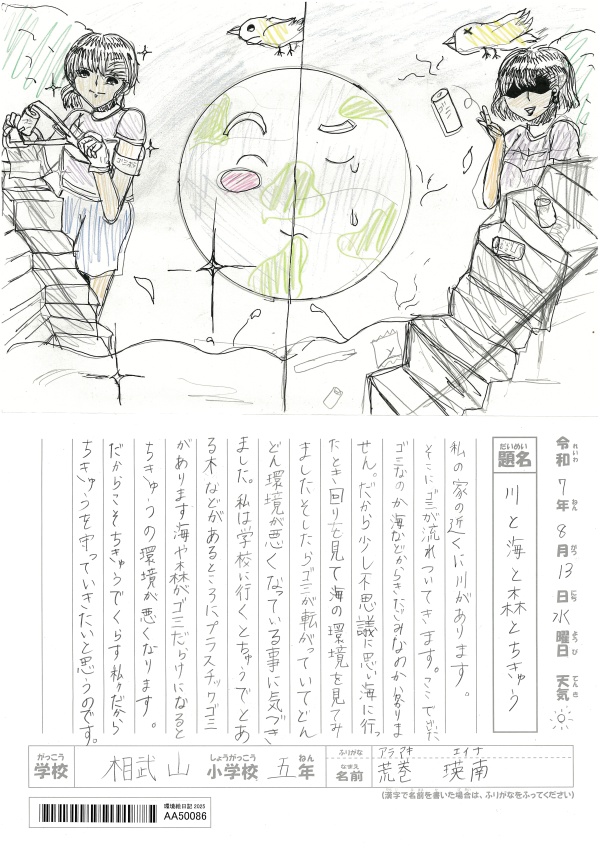 ゴミ拾い
令和 7年 8月 13日 水曜日 天気
れいわ ねん がつ にち ようび てんき
だいめい
題名
川と海と森とちきゅう
私の家の近くに川があります。
そこにゴミが流れついてきます。ここででた
ゴミなのか海などからきたごみなのか分かりま
せん。だから少し不思議に思い海に行っ
たとき回りを見て海の環境を見てみ
ましたそしたらゴミが転がっていてどん
どん環境が悪くなっている事に気づき
ました。私は学校に行くとちゅうでとあ
る木などがあるところにプラスチックゴミ
があります海や森がゴミだらけになると
ちきゅうの環境が悪くなります。
だからこそちきゅうでくらす私タだから
ちきゅうを守っていきたいと思うのです。
がっこう
学校
相武山
しょうがっこう
小学校
五
ねん
年
ふりがな
アラマキ エイナ
なまえ
名前
荒巻 瑛南
(漢字で名前を書いた場合は、ふりがなをふってください)
環境絵日記 2025
AA50086